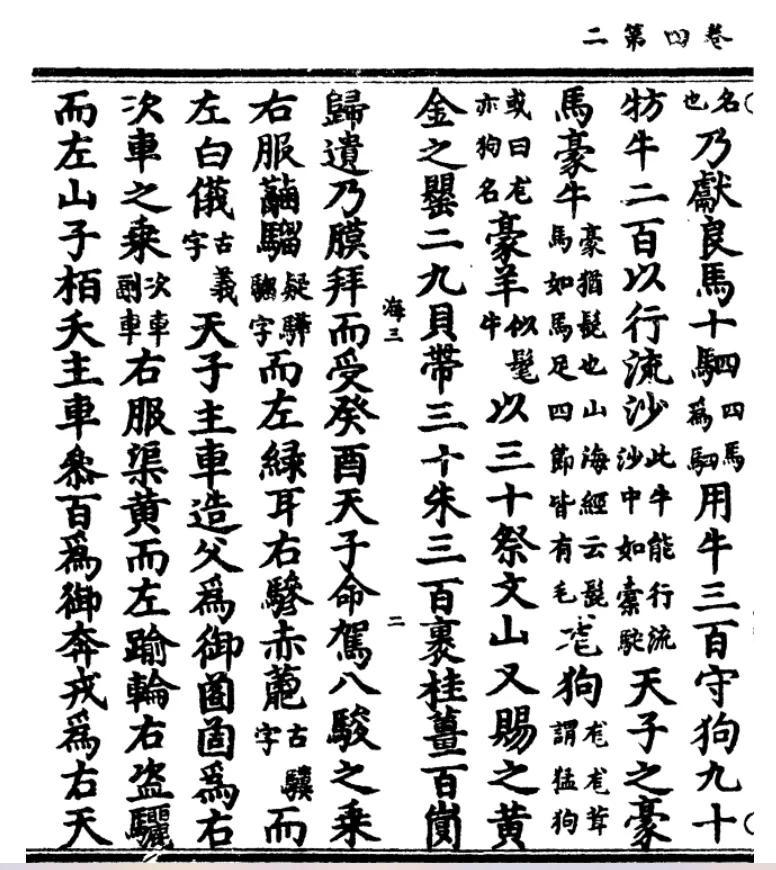 卷四第二
名也乃獻良馬十駟四馬爲駟用牛三百守狗九十
牥牛二百以行流沙此牛能行流沙中如橐駝天子之豪
馬豪牛豪猶髭也山海經云髭馬如馬足四節皆有毛尨狗尨尨茸謂猛狗
或曰尨亦狗名豪羊似髦牛以三十祭文山又賜之黃
金之罌二九貝帶三十朱三百裹桂薑百
海三
二
歸遺乃膜拜而受癸酉天子命駕八駿之乘
右服騮疑驊騮字而左綠耳右驂赤古驥字而
左白儀古義字天子主車造父爲御爲右
次車之乘次車副車右服渠黃而左踰輪右盜驪
而左山子栢夭主車參百爲御奔戎爲右天